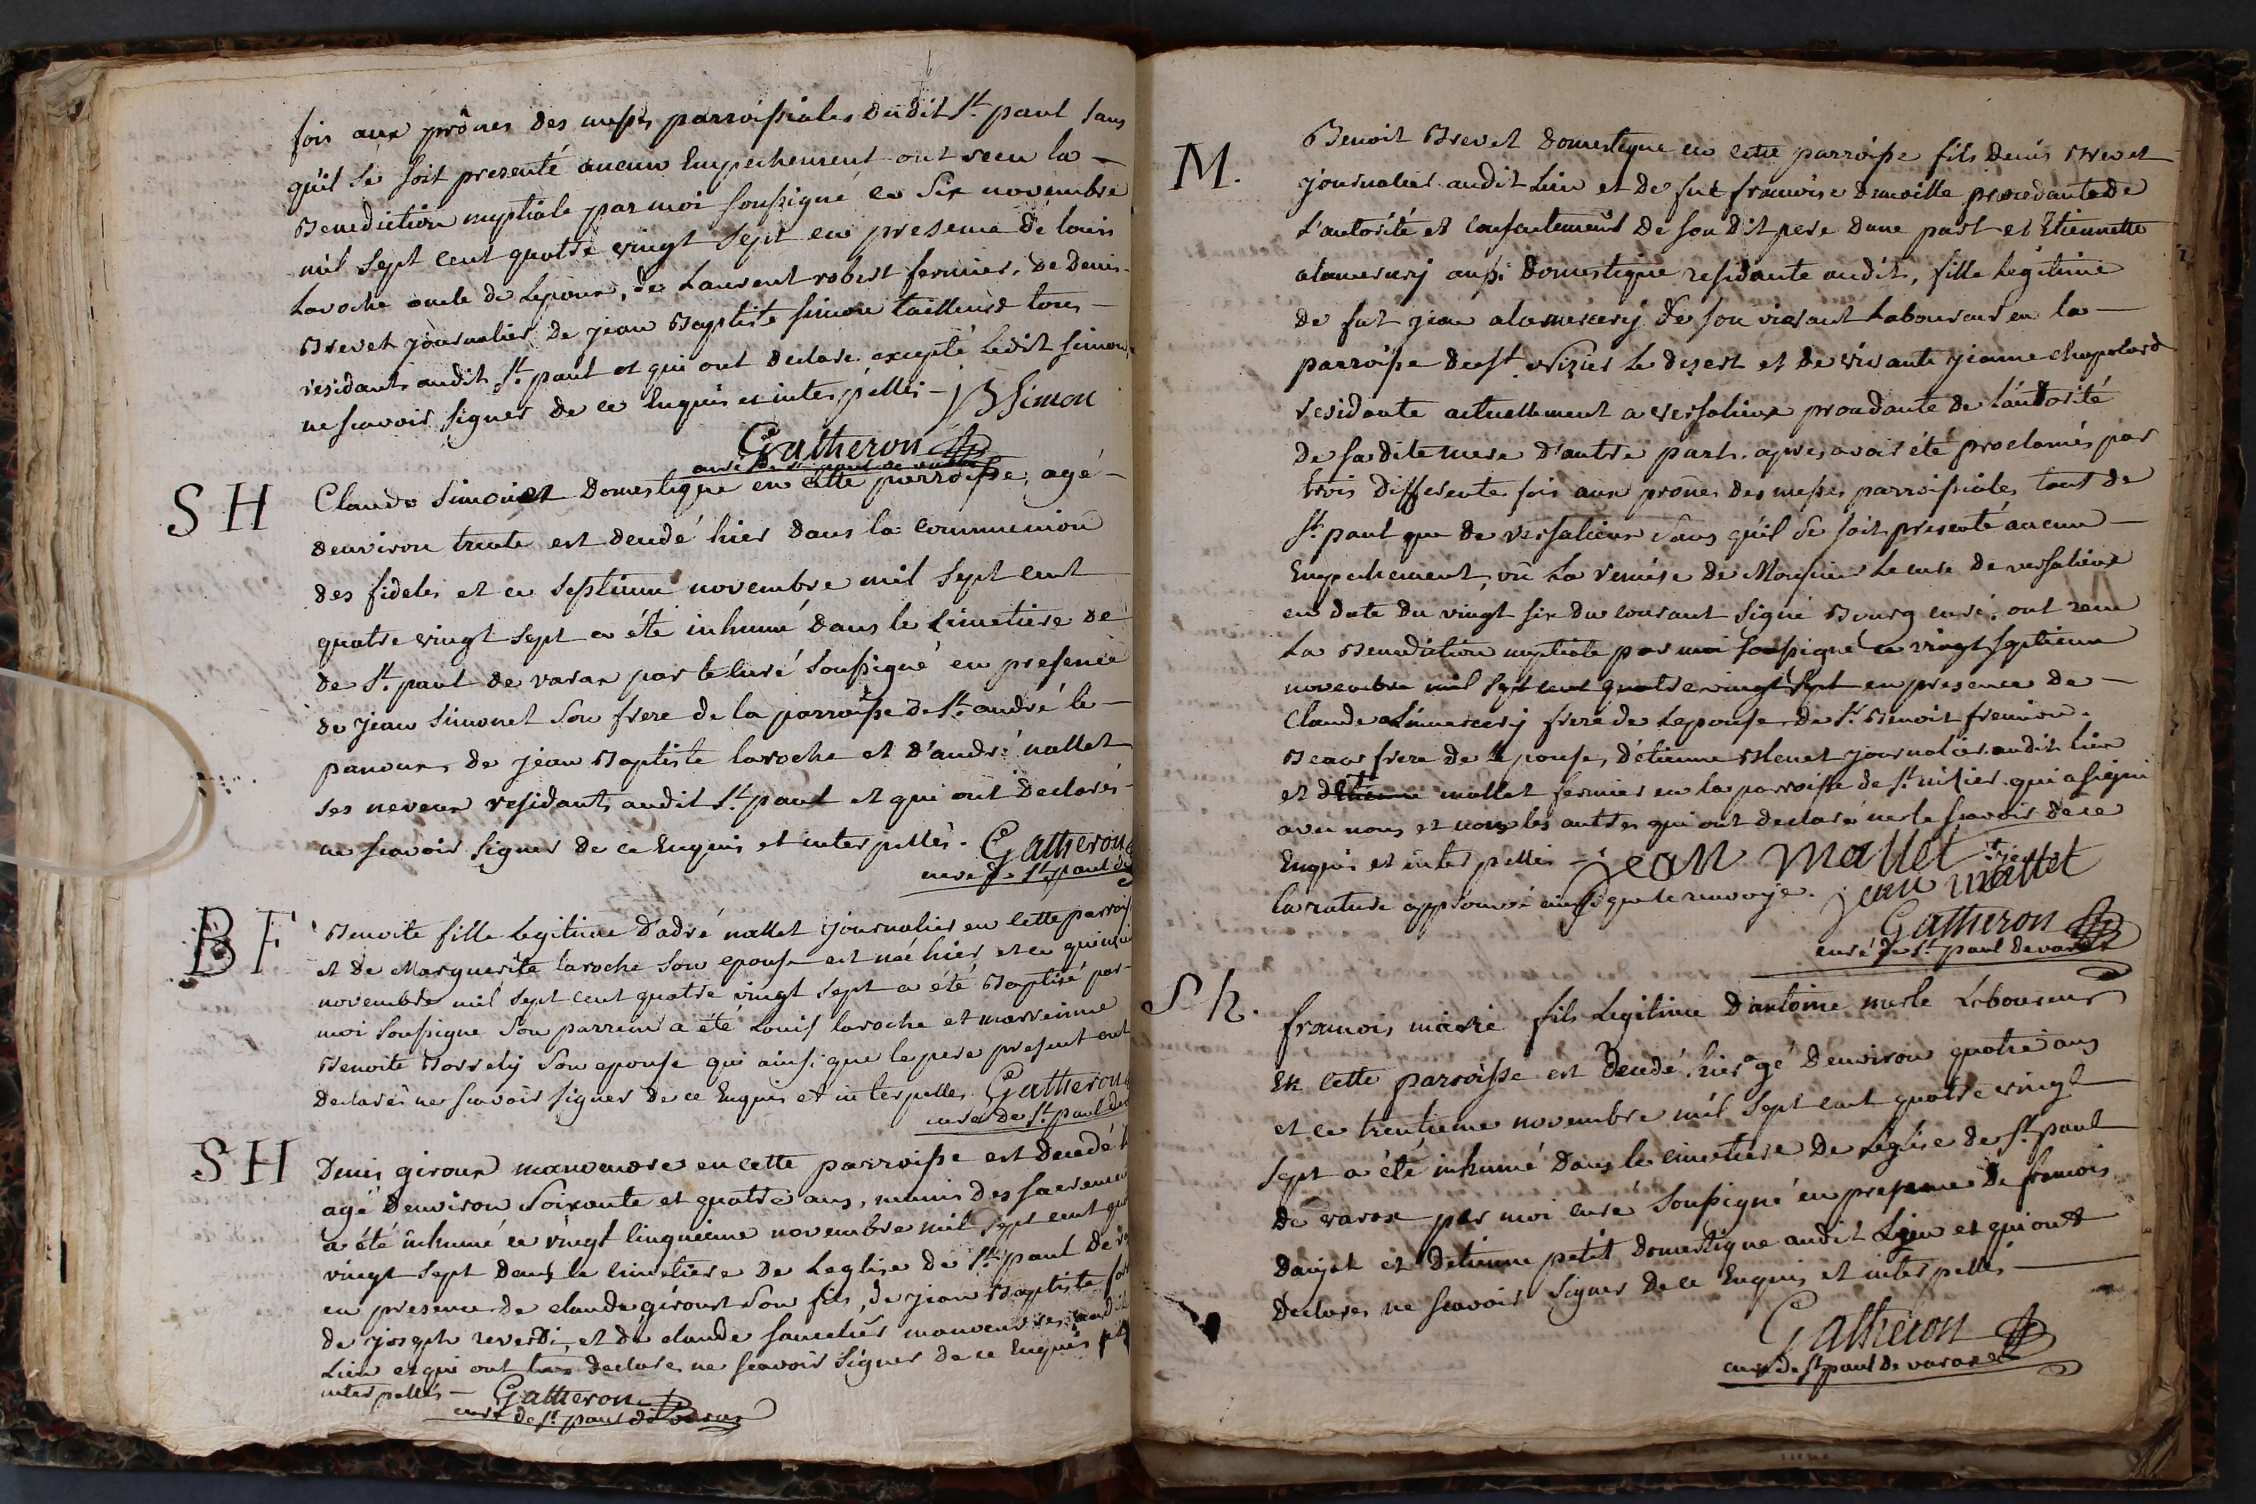 fois aux prônes des messes parroissiales dudit St. paul sans
qu'il se soit presenté aucun Empechement ont recu la
Benediction nuptiale par moi soussigné ce six novembre
mil sept cent quatre vingt sept en presence de louis
Laroche oncle de Lepoux, de Laurent robert fermier, de Denis
Brevet journalier, de jean Baptiste simon tailleurs tous
residants audit St. paul et qui ont declaré excepté ledit simon
ne scavoir signer de ce Enquis et interpellés - JB Simon
Gatheron
curé de st. paul de varax
SH
Claude Simonet Domestique en cette parroisse, agé
denviron trente est decedé hier dans la communion
des fideles et ce septieme novembre mil sept cent
quatre vingt sept a été inhumé dans le cimetiere de
de St. paul de varax par le curé soussigné en presence
de jean simonet son frere de la parroisse de St. andré le
panoux, de jean Baptiste laroche et d'andré nallet
ses neveux residants audit St. paul et qui ont Declarés
ne scavoir signer de ce Enquis et interpellés. Gatheron
curé de St. paul de
BF
Benoite fille Legitime d'adré nallet journalier en cette parroi
et de Marguerite laroche son epouse est née hier et ce quinzie
novembre mil sept cent quatre vingt sept a été Baptisé par
moi soussigne son parrein a été Louis laroche et marreinne
Benoite Borrely son epouse qui ainsi que le pere present ont
Declarés ne scavoir signer de ce Enquis et interpelles Gatheron
curé de St. paul de
SH
Denis giroux manouvre en cette parroisse est decedé h
agé denviron soixante et quatre ans, munis des sacremen
a été inhumé ce vingt cinquieme novembre mil sept cent qua
vingt sept dans le cimetiere de Leglise de St. paul de v
en presence de claude giroux son fils, de jean Baptiste
de joseph reverdi, et de claude manouvres audit
Lieu et qui ont tous declarés ne scavoir signer de ce Enquis et
interpellés - Gatheron
curé de St. paul de varax
M.
Benoit Brevet Domestique en cette parroisse fils Denis Brevet
journalier audit Lieu et de fut francoise procedante de
L'autorité et consentement de son dit pere d'une part et Etiennette
alamercery aussi Domestique residante audit, fille Legitime
de fut jean alamercery de son vivant Laboureur en la
parroisse de St. nizier Le desert et de vivante jeanne chapolard
residante actuellement a versalieux procedante de l'autorité
de sadite mere d'autre part. apres avoir été proclamés par
trois differente fois aux prônes des messes parroissiales tant de
St. paul que de versalieux sans qu'il se soit presenté aucun
Empechement, vû La remise de Monsieur Le curé de versalieux
en date du vingt six du courant signé Bourg curé, ont recu
La Benediction nuptiale par moi soussigné ce vingt septieme
novembre mil sept cent quatre vingt sept en presence de
Claude alamercery frere de Lepouse de Sr. Benoit fremion
Beau frere de Lepouse, d'etienne Blenet journalier audit lieu
et d'Etienne mallet fermier en la parroisse de St. nizier qui a signé
avec nous et non les autres qui ont declaré ne le scavoir de ce
Enquis et interpellés - jean mallet
jean mallet
la rature approuvé ainsi que le renvoye.
Gatheron
curé de St. paul de varax
Sh.
francois marie fils Legitime D'antoine merle Laboureur
En cette parroisse est decedé hier agé denviron quatre ans
et ce trentieme novembre mil sept cent quatre vingt
sept a été inhumé dans le cimetiere de Leglise de St. paul
de varax par moi curé soussigné en presence de francois
Danjat et d'etienne petit domestique audit Lieu et qui ont
Declarés ne scavoir signer de ce Enquis et interpellés
Gatheron
curé de St. paul de varax